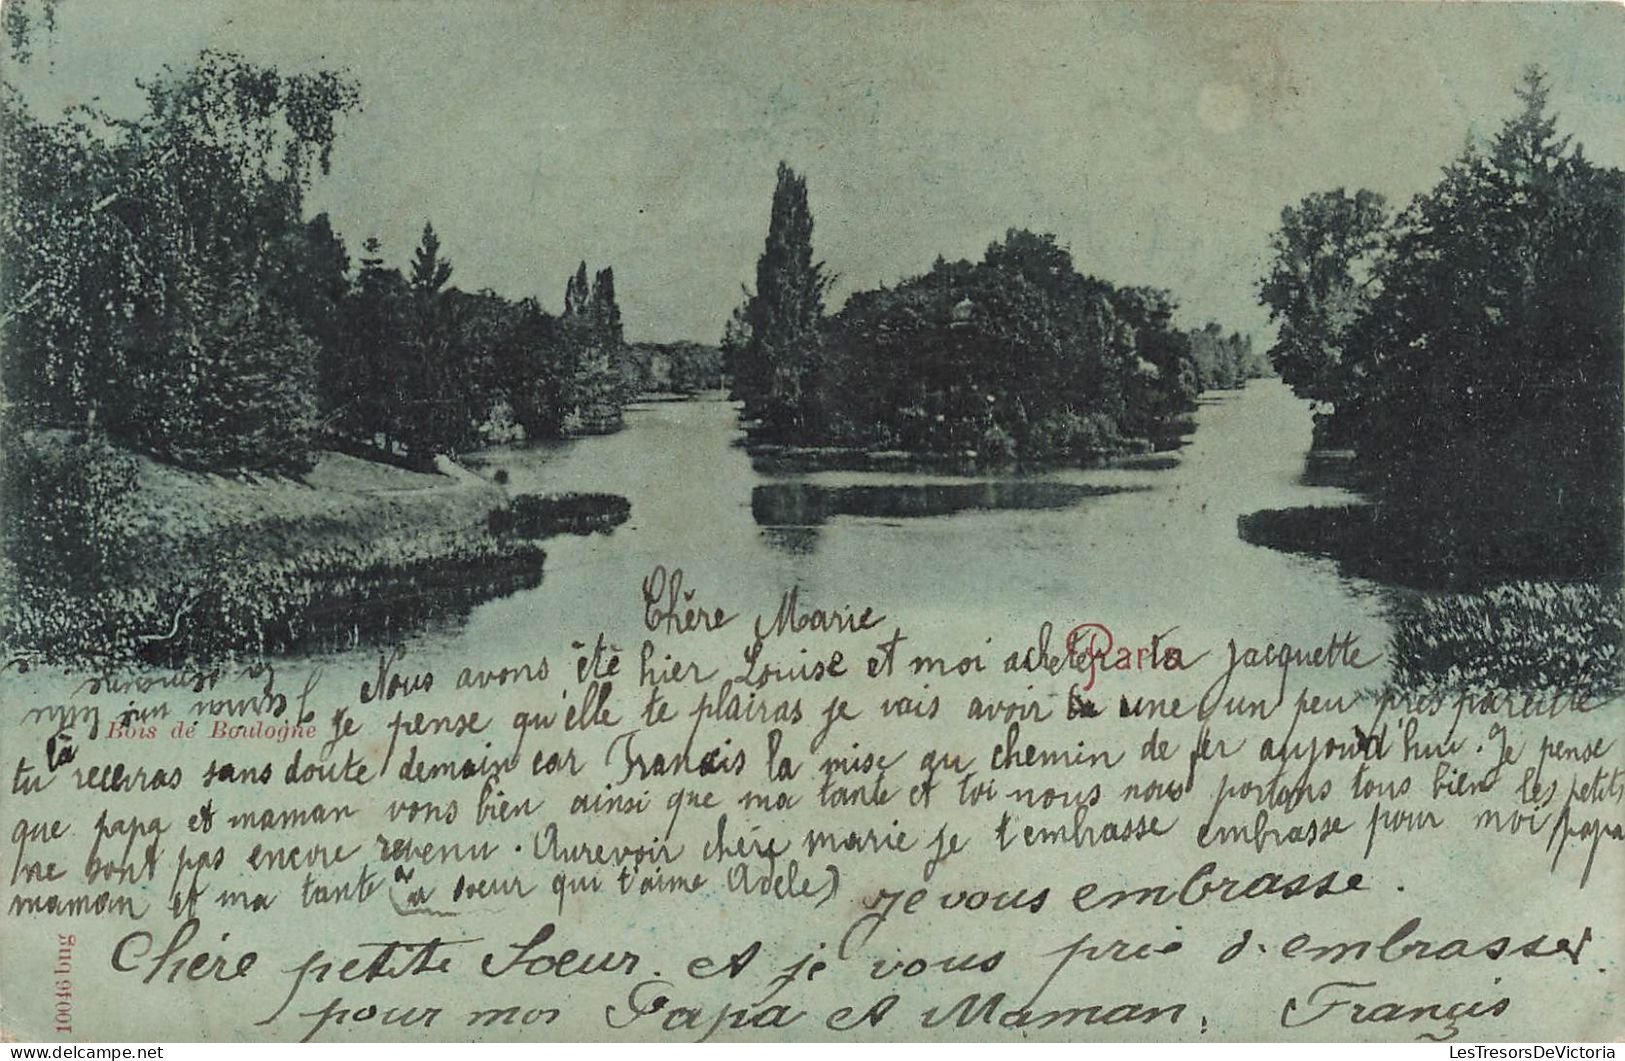 Chère Marie
Nous avons été hier Louise et moi acheter ta Jacquette
Paris
Je pense qu'elle te plairas je vais avoir une un peu près pareille
Bois de Boulogne
tu la recevras sans doute demain car Francis la mise au chemin de fer aujourd'hui. Je pense
que papa et maman vons bien ainsi que ma tante et toi nous nous portons tous bien les petits
ne sont pas encore revenu. Aurevoir chère marie je t'embrasse embrasse pour moi papa
maman et ma tante ta soeur qui t'aime Adèle
Je vous embrasse.
Chère petite Soeur. Et je vous prie d'embrasser
pour moi Papa et Maman. Francis
10046 bng
LesTresorsDeVictoria.com